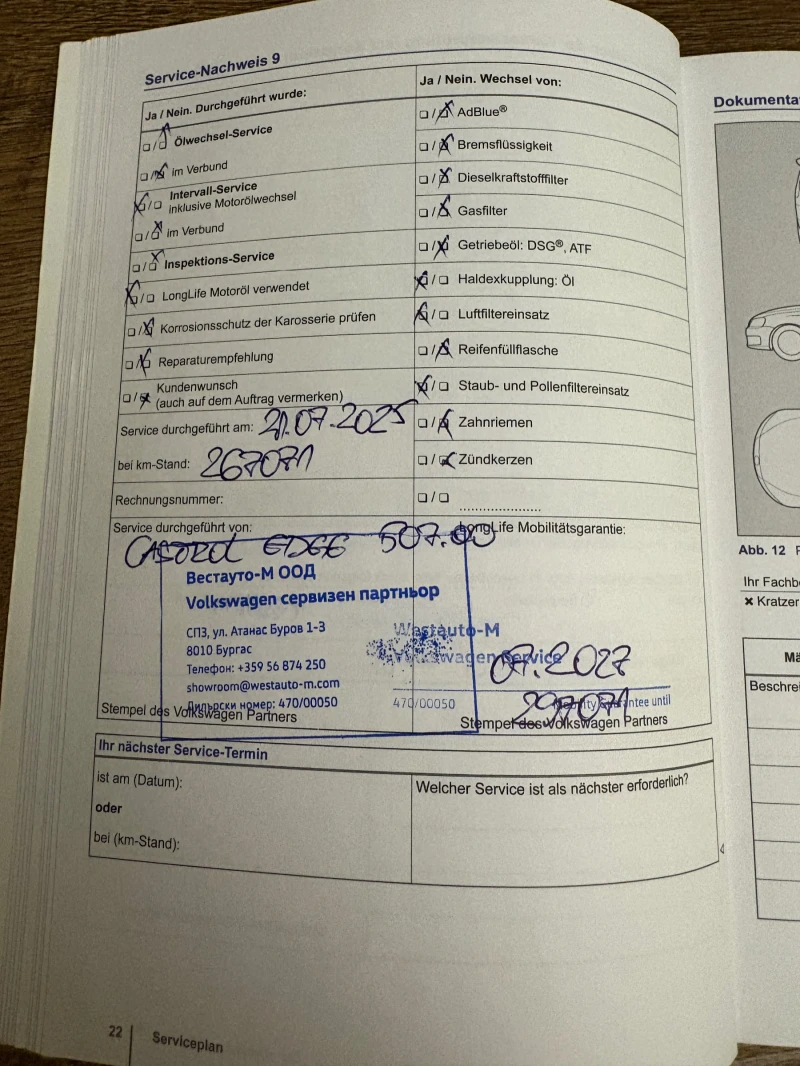 Service-Nachweis 9
Ja / Nein. Durchgeführt wurde:
Ölwechsel-Service
Im Verbund
Intervall-Service
inklusive Motorölwechsel
Im Verbund
Inspektions-Service
LongLife Motoröl verwendet
Korrosionsschutz der Karosserie prüfen
Reparaturempfehlung
Kundenwunsch
(auch auf dem Auftrag vermerken)
Service durchgeführt am: 21.07.2025
bei km-Stand: 267071
Rechnungsnummer:
Ja / Nein. Wechsel von:
AdBlue®
Bremsflüssigkeit
Dieselkraftstofffilter
Gasfilter
Getriebeöl: DSG®, ATF
Haldexkupplung: Öl
Luftfiltereinsatz
Reifenfüllflasche
Staub- und Pollenfiltereinsatz
Zahnriemen
Zündkerzen
....................
Service durchgeführt von:
CASTROL EDGE 507.00
Вестауто-М ООД
Volkswagen сервизен партньор
СПЗ, ул. Атанас Буров 1-3
8010 Бургас
Телефон: +359 56 874 250
showroom@westauto-m.com
Дилърски номер: 470/00050
Stempel des Volkswagen Partners
LongLife Mobilitätsgarantie:
Westauto-M
Volkswagen Service
07.2027
297071
470/00050
guarantee until
Stempel des Volkswagen Partners
Ihr nächster Service-Termin
ist am (Datum):
oder
bei (km-Stand):
Welcher Service ist als nächster erforderlich?
22
Serviceplan
Dokumenta
Abb. 12
Ihr Fachb
✖ Kratzer
Mä
Beschrei